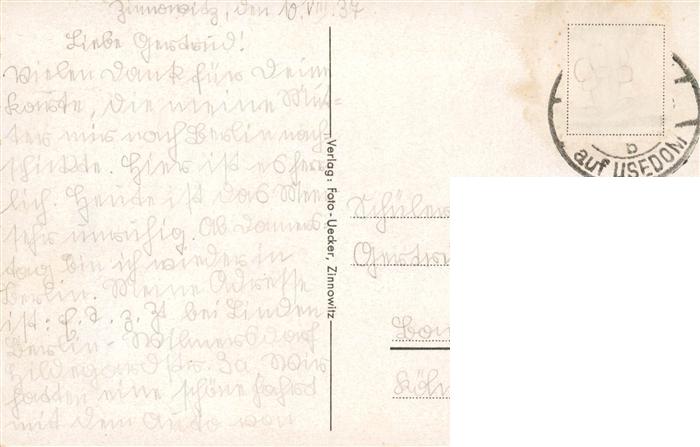 Zinnowitz, den 10. VIII. 37
Liebe Gertrud!
Vielen Dank für Deine
Karte, die meine Mut-
ter mir nach Berlin nach-
schickte. Hier ist es herr-
lich. Heute ist das Meer
sehr unruhig. Ab Donners-
tag bin ich wieder in
Berlin. Meine Adresse
ist: z. Zt bei Linden
Berlin-Wilmersdorf
Hildegardstr. 3a. Wir
hatten eine schöne Fahrt
mit dem Auto von
Verlag: Foto-Uecker, Zinnowitz
b
auf USEDOM
Schüler
Gertru
Köln